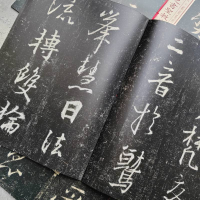 梵交
二音於鷲
峯慧日法
流轉雙輪於